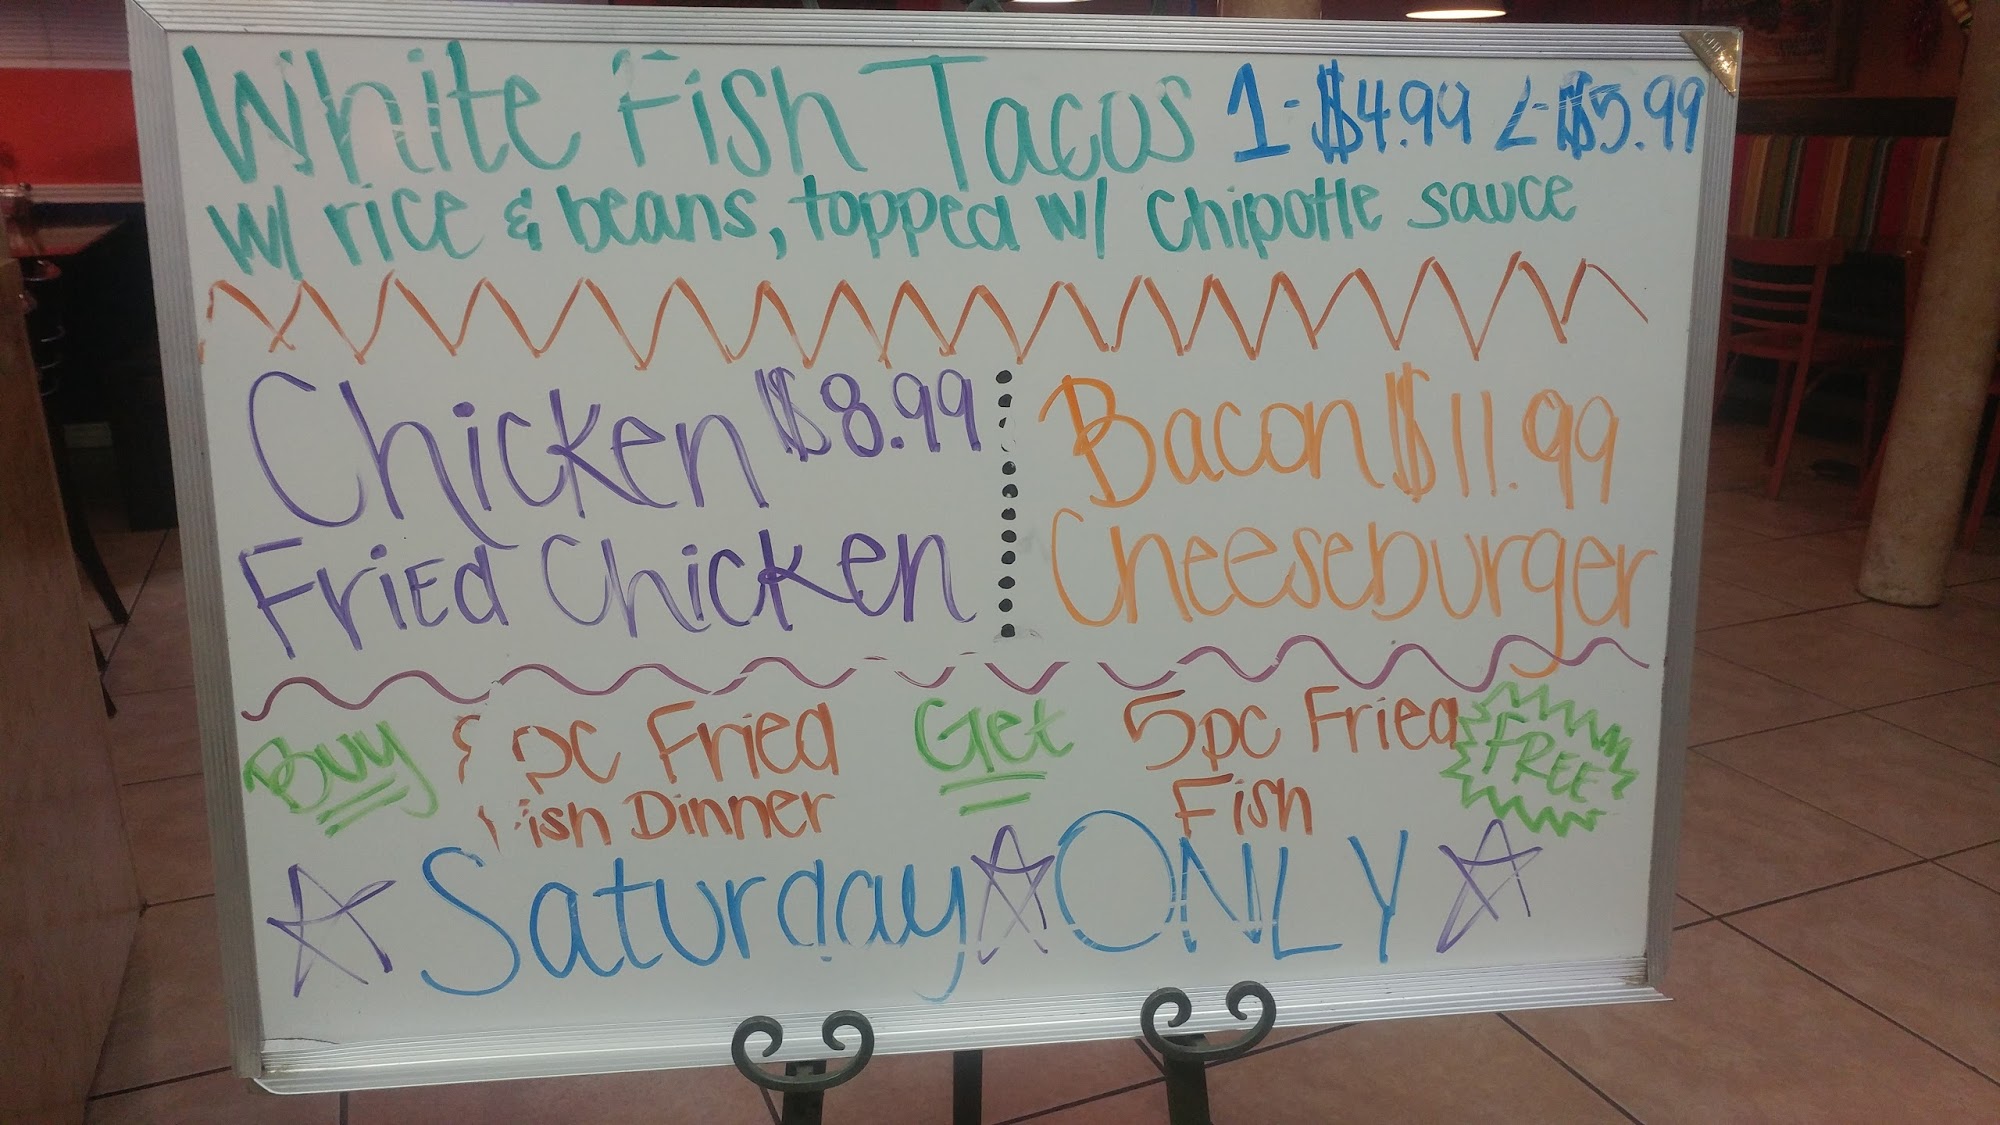 White Fish Tacos 1-$4.99 2-$5.99
w/ rice & beans, topped w/ chipotle sauce
Chicken $8.99
Fried Chicken
Bacon $11.99
Cheeseburger
Buy pc Fried
Fish Dinner
Get
5pc Fried
Fish
FREE
Saturday ONLY